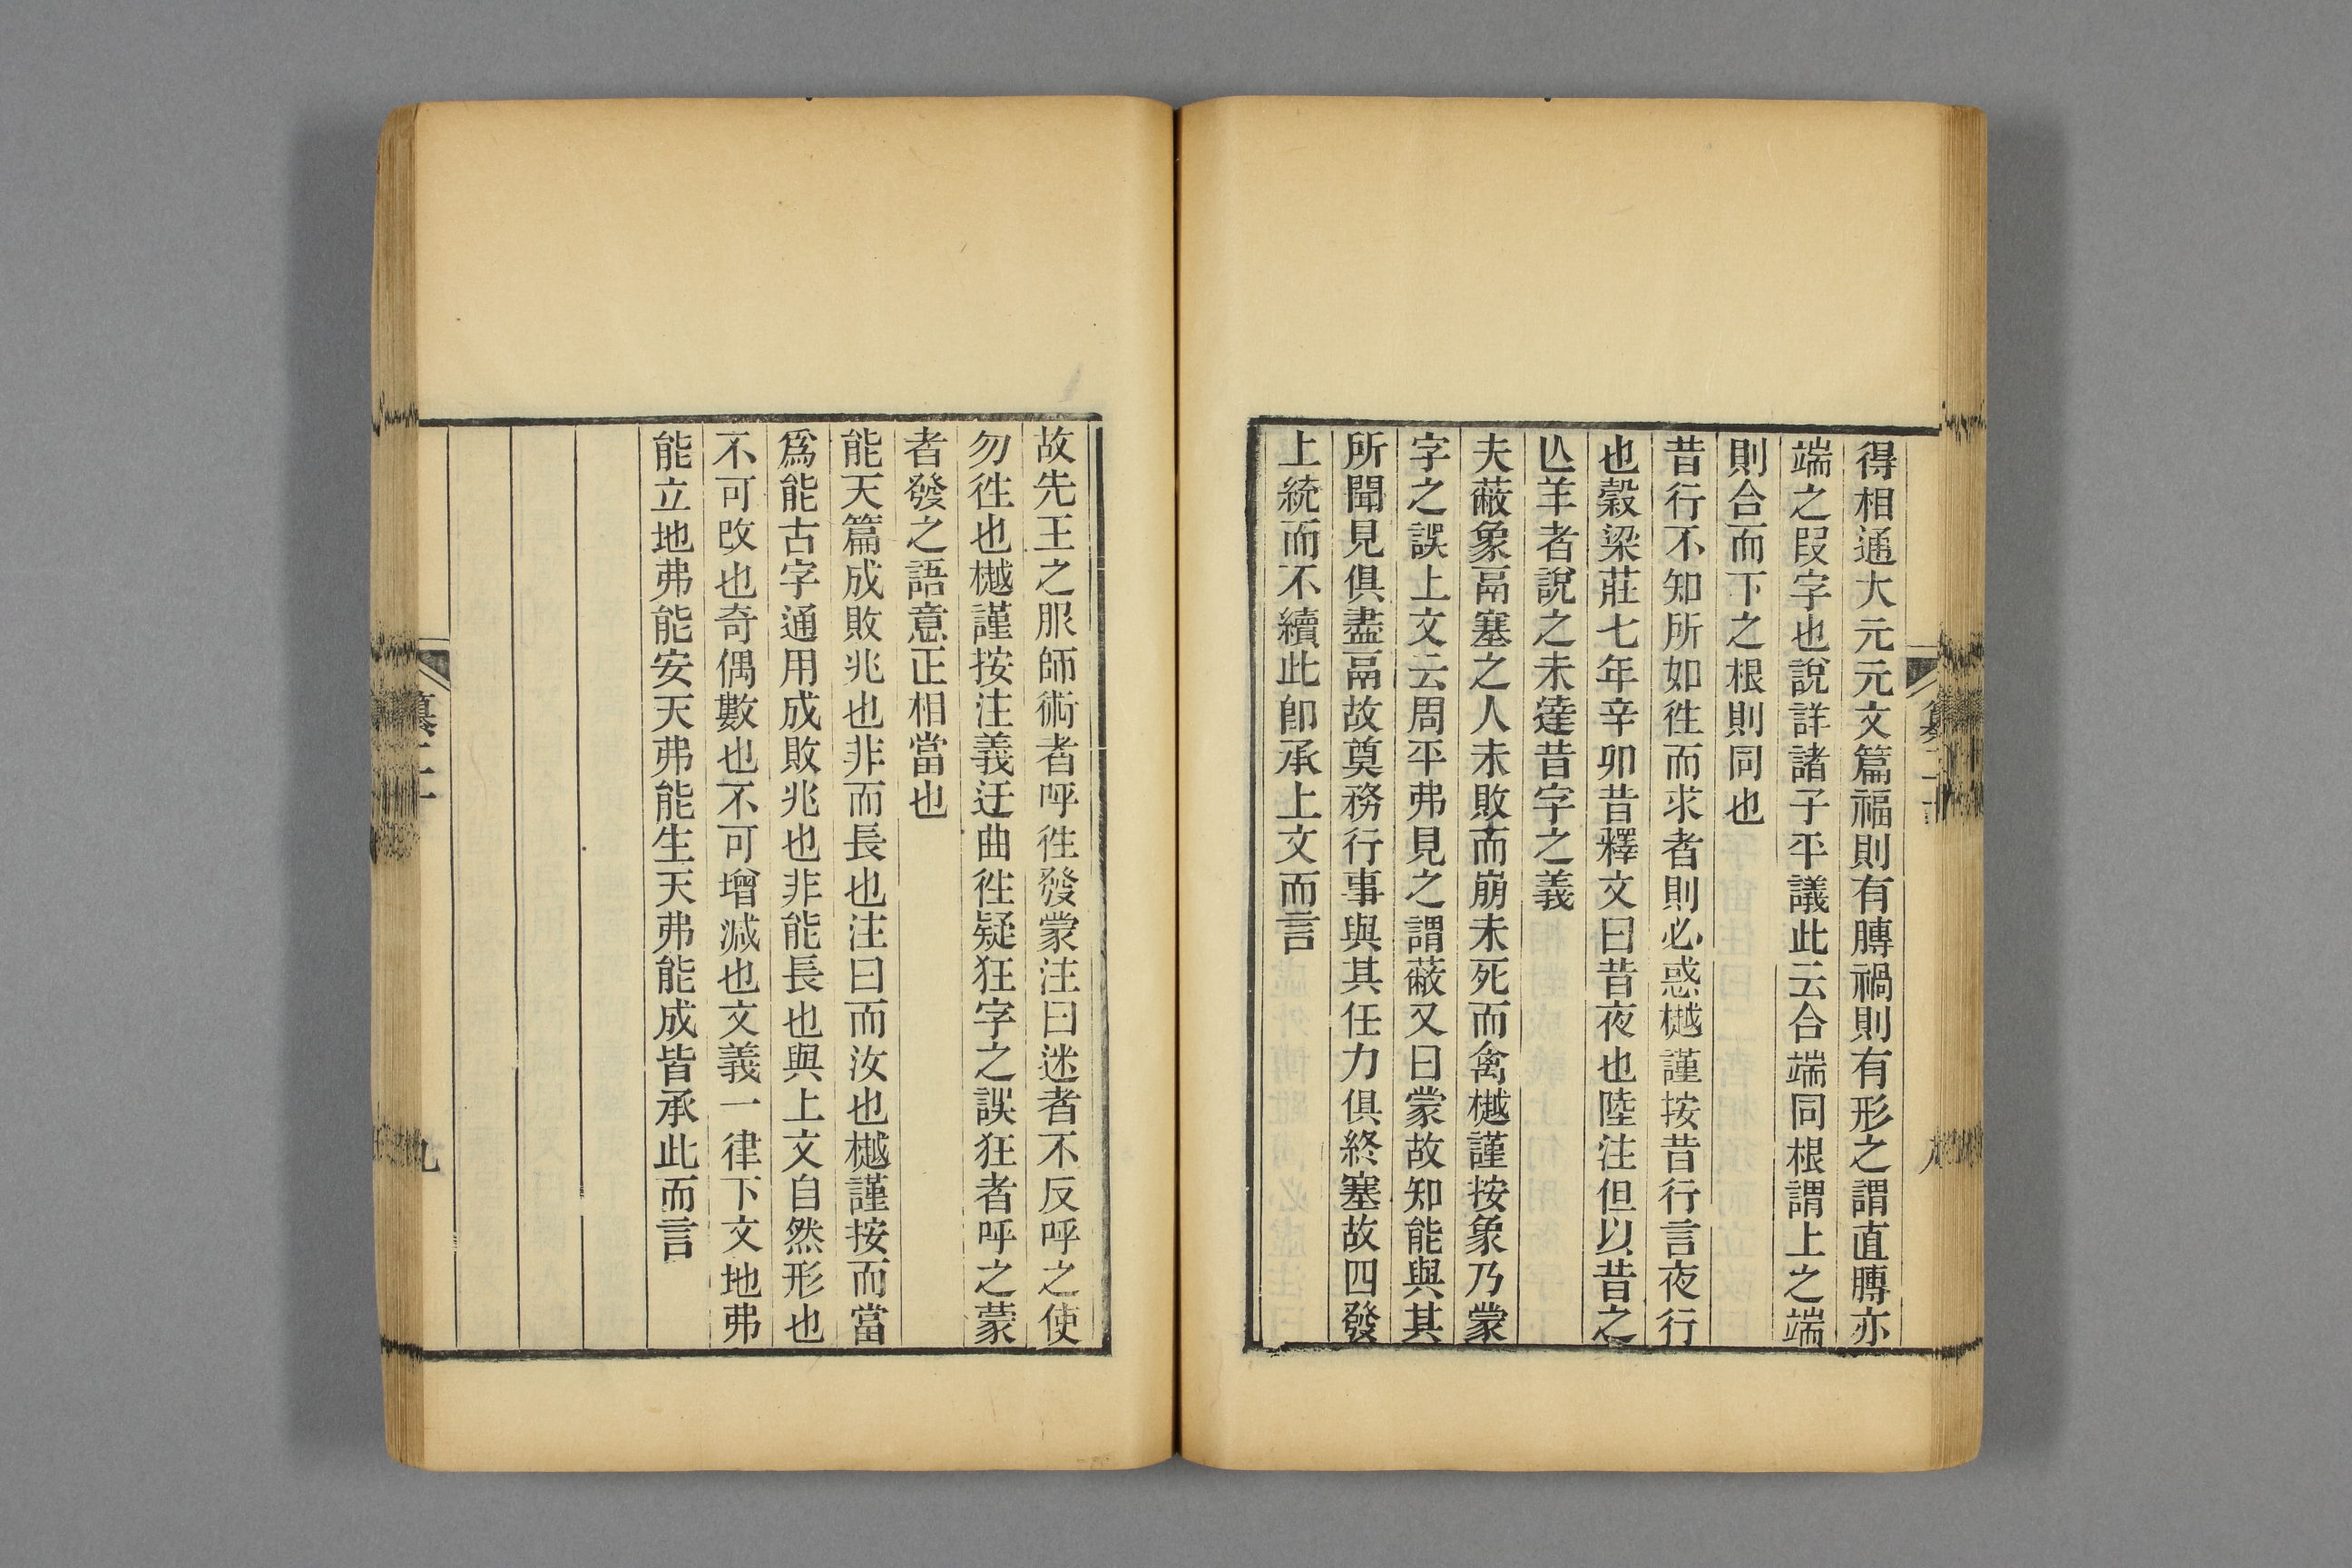 得相通大元元文篇福則有膊禍則有形之謂直膊亦
端之叚字也說詳諸子平議此云合端同根謂上之端
則合而下之根則同也
昔行不知所如徃而求者則必惑樾謹按昔行言夜行
也穀梁莊七年辛卯昔釋文曰昔夜也陸注但以昔之
亾羊者說之未達昔字之義
夫蔽象鬲塞之人未敗而崩未死而禽樾謹按象乃蒙
字之誤上文云周平弗見之謂蔽又曰蒙故知能與其
所聞見俱盡鬲故奠務行事與其任力俱終塞故四發
上統而不續此卽承上文而言
故先王之服師術者呼徃發蒙注曰迷者不反呼之使
勿徃也樾謹按注義迂曲徃疑狂字之誤狂者呼之蒙
者發之語意正相當也
能天篇成敗兆也非而長也注曰而汝也樾謹按而當
爲能古字通用成敗兆也非能長也與上文自然形也
不可改也奇偶數也不可增減也文義一律下文地弗
能立地弗能安天弗能生天弗能成皆承此而言
九